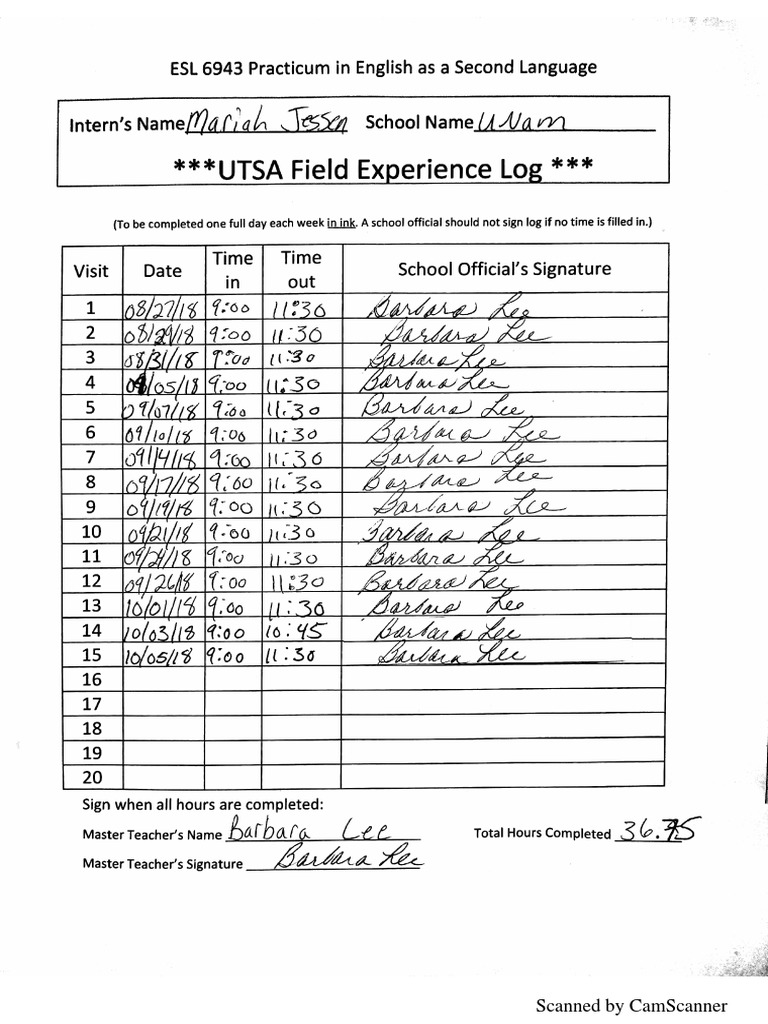 ESL 6943 Practicum in English as a Second Language
Intern's Name Mariah Jessen School Name UNam
***UTSA Field Experience Log ***
(To be completed one full day each week in ink. A school official should not sign log if no time is filled in.)
Visit Date Time in Time out School Official's Signature
1 08/27/18 9:00 11:30 Barbara Lee
2 08/29/18 9:00 11:30 Barbara Lee
3 08/31/18 9:00 11:30 Barbara Lee
4 09/05/18 9:00 11:30 Barbara Lee
5 09/07/18 9:00 11:30 Barbara Lee
6 09/10/18 9:00 11:30 Barbara Lee
7 09/14/18 9:00 11:30 Barbara Lee
8 09/17/18 9:00 11:30 Barbara Lee
9 09/19/18 9:00 11:30 Barbara Lee
10 09/21/18 9:00 11:30 Barbara Lee
11 09/24/18 9:00 11:30 Barbara Lee
12 09/26/18 9:00 11:30 Barbara Lee
13 10/01/18 9:00 11:30 Barbara Lee
14 10/03/18 9:00 10:45 Barbara Lee
15 10/05/18 9:00 11:30 Barbara Lee
16
17
18
19
20
Sign when all hours are completed:
Master Teacher's Name Barbara Lee Total Hours Completed 36.75
Master Teacher's Signature Barbara Lee
Scanned by CamScanner